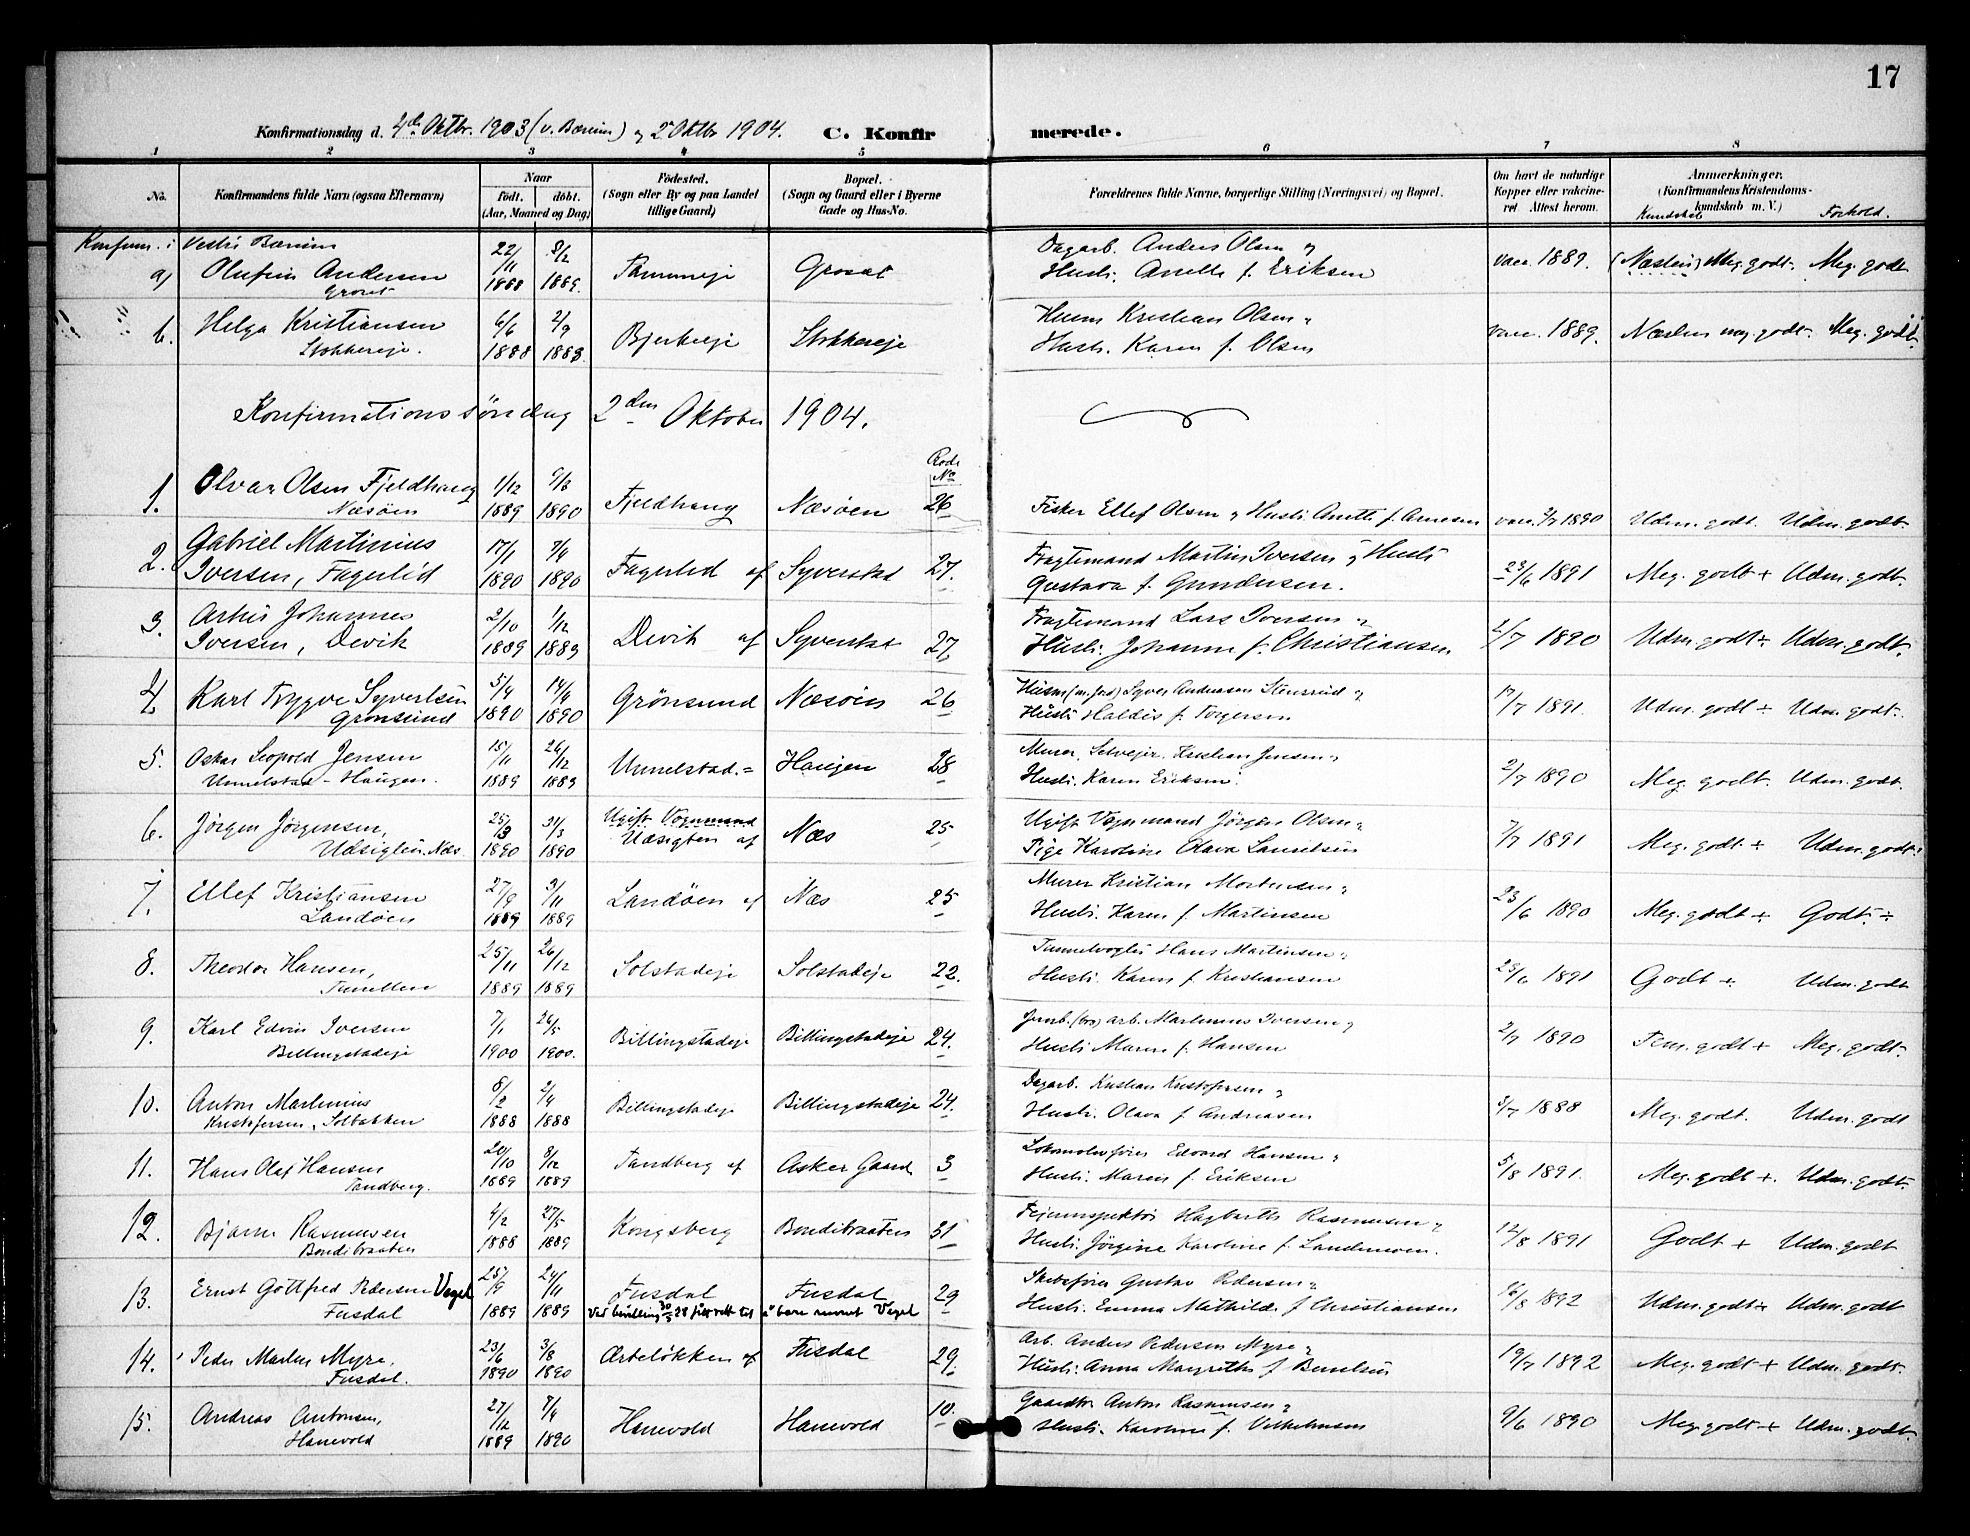 17
Konfirmationsdag d. 4de Oktbr. 1903 (v. Bærum) og 2 Oktbr 1904. C. Konfirmerede.
1 2 3 4 5 6 7 8
No. Konfirmandens fulde Navn (ogsaa Efternavn) Naar født. døbt. (Aar, Maaned og Dag) Fødested. (Sogn eller By og paa Landet tillige Gaard) Bopæl. (Sogn og Gaard eller i Byerne Gade og Hus-No. Forældrenes fulde Navne, borgerlige Stilling (Næringsvei) og Bopæl. Om havt de naturlige Kopper eller vaccineret. Attest herom. Anmærkninger. (Konfirmandens Kristendomskundskab m. V.) Kundskab Forhold.
Konfirm. i Vestre Bærum
a) Olufine Andersen 22/11 1888 8/12 1889. Tanumeje Groset Dagarb. Anders Olsen og
Groset Hustr. Anette f. Eriksen vacc. 1889. (Næsten) Meg. godt. Meg. godt
b. Helga Kristiansen 6/6 1888 2/9 1888. Bjerkeeje Stokkereje Husm Kristian Olsen og
Stokkereje. Hustr. Karen f. Olsen vacc. 1889. Næsten meg godt. Meg. godt.
Konfirmationssöndag 2den Oktober 1904.
Rode No
1. Olvar Olsen Fjeldhaug 1/12 1889 6/3 1890 Fjeldhaug Næsöen 26
Næsöen Fisker Ellef Olsen og Hustr. Anette f. Arnesen vacc. 2/7 1890 Udm. godt. Udm. godt.
2. Gabriel Martinius 17/1 1890 7/4 1890 Fagerlid af Syverstad 27. Fragtemand Martin Iversen og Hustr
Iversen, Fagerlid Gustava f. Gundersen. 23/6 1891 Meg. godt + Udm. godt.
3. Arthur Johannes 2/10 1889 1/12 1889 Devik af Syverstad 27 Fragtemand Lars Iversen og
Iversen, Devik Hustr. Johanne f. Christiansen 2/7 1890 Udm. godt ÷ Udm. godt.
4. Karl Trygve Syvertsen 5/4 1890 14/9 1890 Grönsund Næsöen 26 Husm (m. jord) Syver Andreasen Stensrud og
Grönsund Hustr. Haldis f. Torgersen 17/7 1891. Udm. godt ÷ Udm. godt.
5. Oskar Leopold Jensen 15/11 1889 26/12 1889 Unnelstad = Haugen 28 Murer, Selvejer. Kristian Jensen og
Unnelstad - Haugen. Hustr. Karen Eriksen. 2/7 1890 Meg. godt. Udm. godt.
6. Jörgen Jörgensen, 25/3 1890 31/3 1890 Ugift Vognmand Udsigten af Næs 25 Ugift Vognmand Jörgen Olsen og
Udsigten. Næs. Pige Karoline Olava Lauritsen 7/7 1891 Meg. godt + Udm. godt.
7. Ellef Kristiansen 27/9 1889 3/11 1889 Landöen af Næs 25 Murer Kristian Mortensen og
Landöen Hustr. Karen f. Martinsen 23/6 1890 Meg. godt + Godt ÷
8. Theodor Hansen, 25/11 1889 26/12 1889 Solstadeje Solstadeje 22. Tunnelvogter Hans Martinsen og
Tunellen Hustr. Karen f. Kristiansen 23/6 1891 Godt +. Udm. godt
9. Karl Edvin Iversen 7/1 1900 26/5 1900. Billingstadeje Billingstadeje 24. Jernb. (bro) arb. Martinius Iversen og
Billingstadeje Hustr. Maren f. Hansen 2/7 1890 Tem. godt + Meg. godt.
10. Anton Martinius 8/2 1888 2/4 1888 Billingstadeje Billingstadeje 24. Dagarb. Kristian Kristofersen og
Kristofersen, Solbakken Hustr. Olava f. Andreasen 3/7 1888 Meg. godt. Udm. godt
11. Hans Olaf Hansen 20/10 1889 8/12 1889 Tandberg af Asker Gaard 3 Lokomotivförer Edvard Hansen og
Tandberg. Hustr. Maren f. Eriksen 5/8 1891. Meg. godt +. Udm. godt.
12. Bjarne Rasmussen 4/2 1888 27/5 1889 Kongsberg Bondibraaten 31 Fejerinspektör Hagbarth Rasmussen og
Bondibraaten Hustr. Jörgine Karoline f. Landemoen. 12/8 1891 Godt + Udm. godt
13. Ernst Gottfred Pedersen Vagel 25/9 1889 24/11 1889 Fusdal Fusdal 29 Skibsförer Gustav Pedersen og
Fusdal Ved bevilling 30/5 28 fått rett til å bære navnet Vagel Hustr. Emma Mathilde f. Christiansen 16/8 1892 Udm. godt + Udm. godt
14. Peder Marius Myre, 23/6 1890 3/8 1890 Ærteløkken af Fusdal 29. Arb. Anders Pedersen Myre og
Fusdal. Hustr. Anna Margrethe f. Bentsen 19/7 1892 Meg. godt + Udm. godt.
15. Andreas Antonsen, 27/12 1889 7/4 1890 Hanevold Hanevold 10. Gaardbr Anton Rasmussen og
Hanevold Hustr. Karoline f. Vilhelmsen 9/6 1890 Meg. godt + Udm. godt.